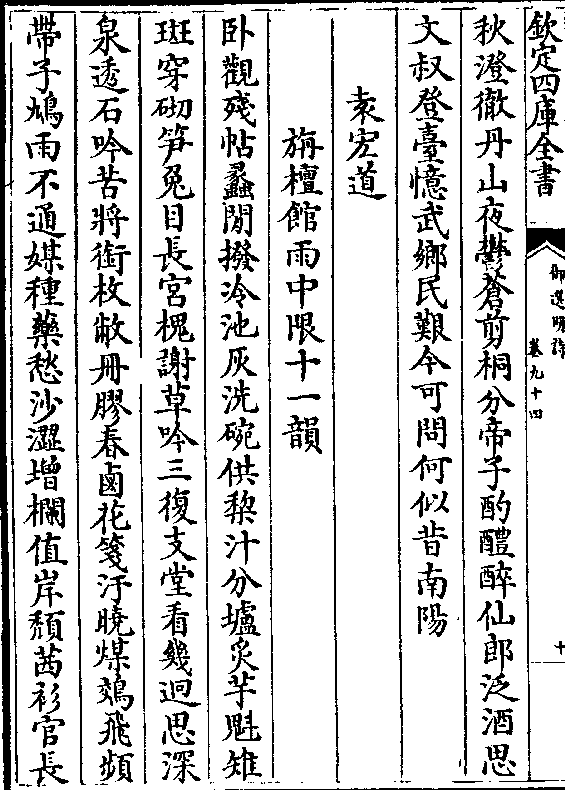 欽定四庫全書
御選明詩
卷九十四
十
秋澄徹丹山夜鬱蒼剪桐分帝子酌醴醉仙郎泛酒思
文叔登臺憶武鄉民艱今可問何似昔南陽
袁宏道
旃檀館雨中限十一韻
卧觀殘帖蠡閒撥冷池灰洗碗供棃汁分爐炙芋魁雉
斑穿砌笋兔目長宮槐謝草吟三復支堂看幾迴思深
泉透石吟苦將銜枚敝冊膠春鹵花箋汙曉煤鵁飛頻
帶子鳩雨不通媒種藥愁沙澀増欄值岸頽茜衫官長